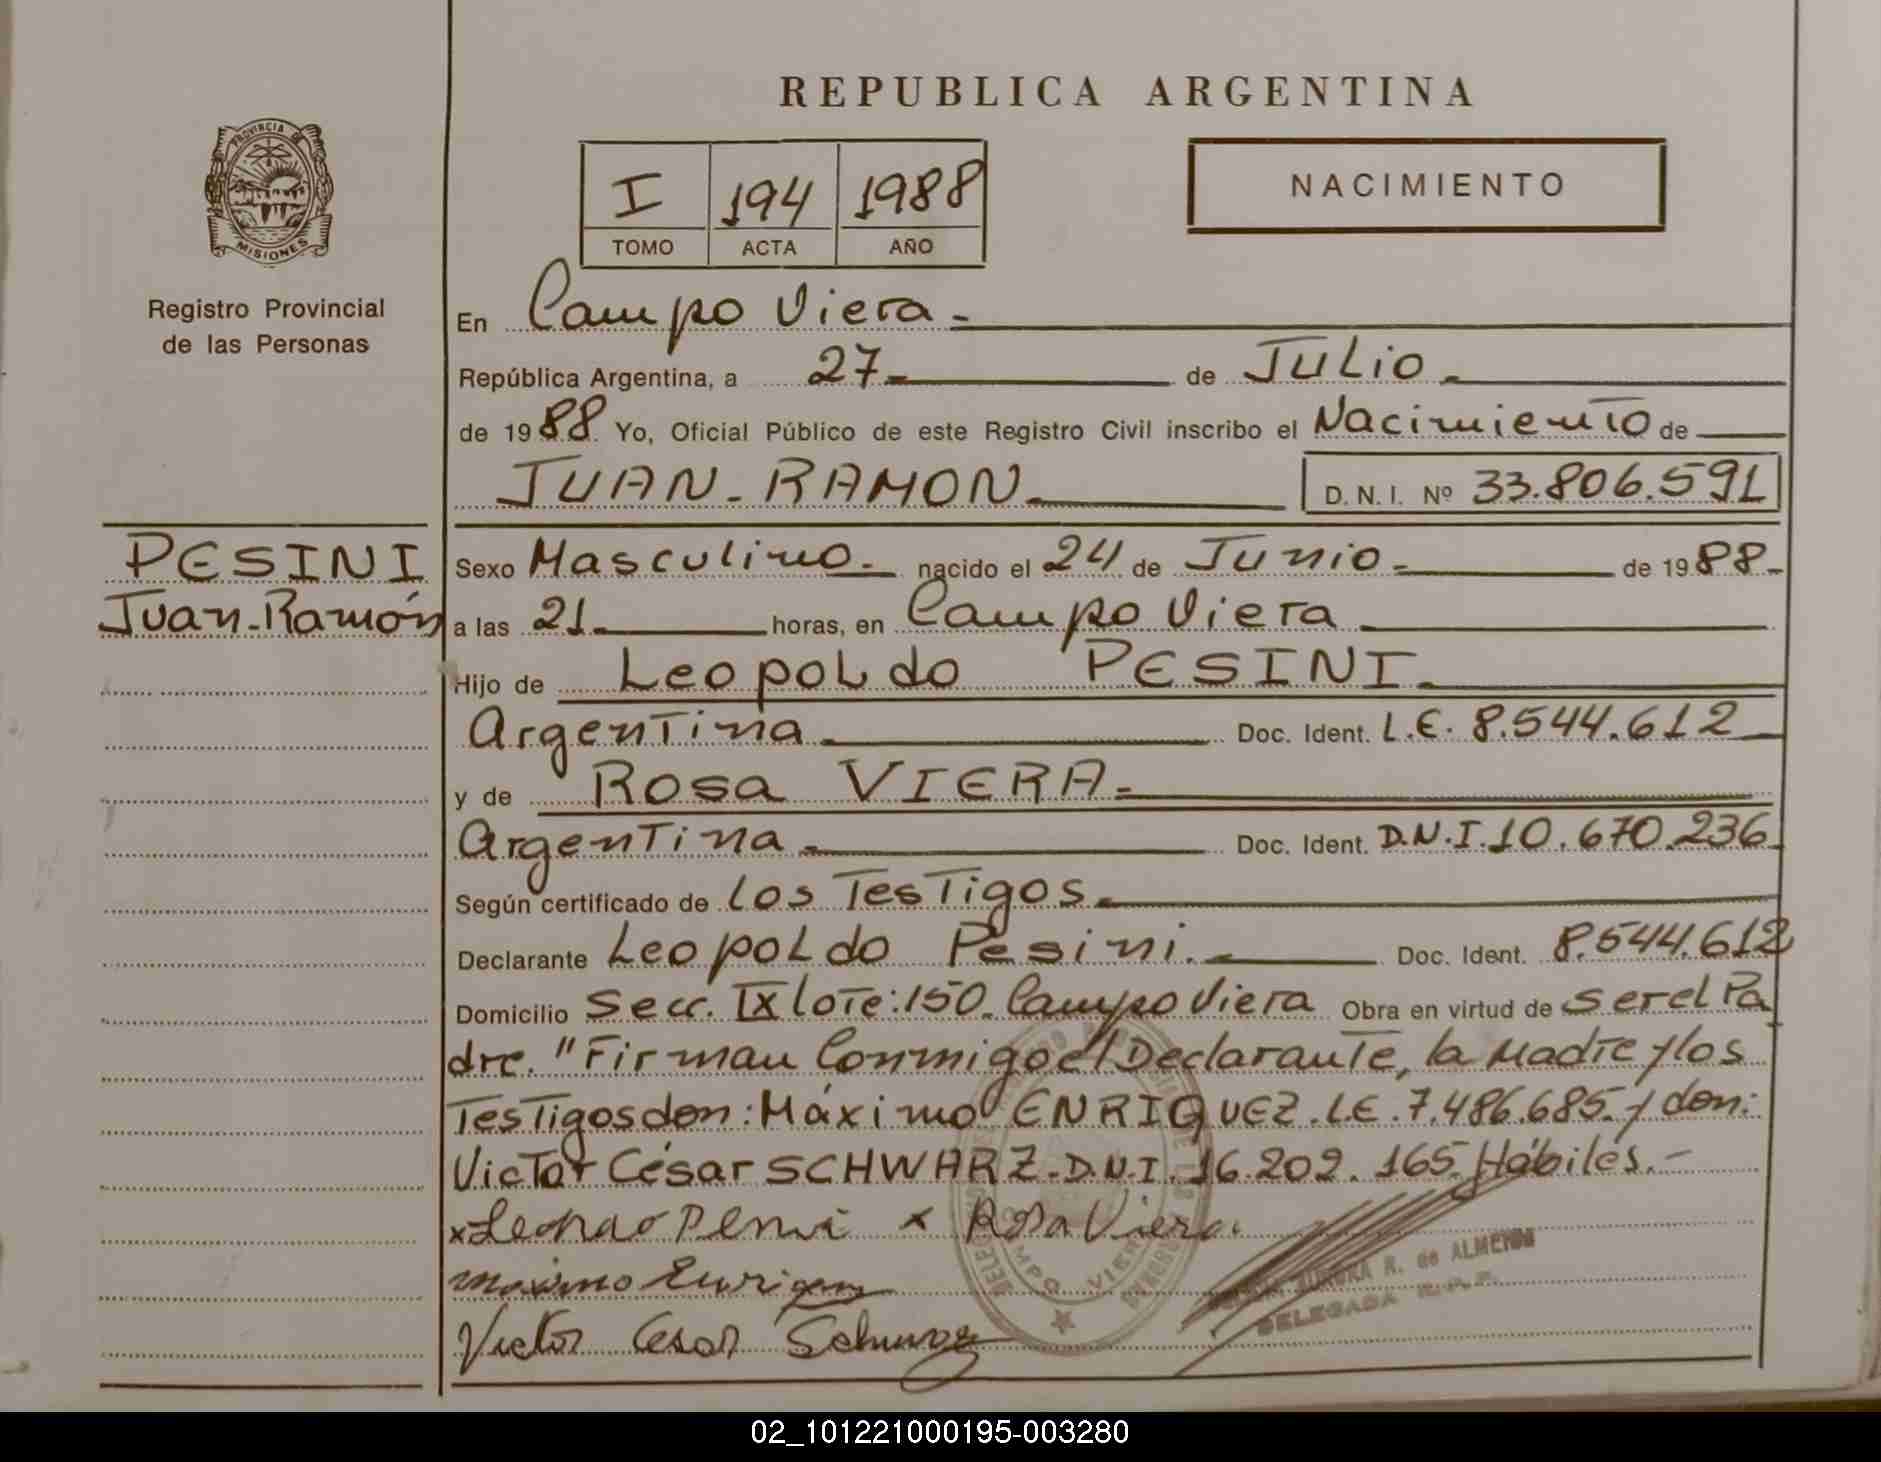 REPUBLICA ARGENTINA
PROVINCIA DE
MISIONES
Registro Provincial
de las Personas
I 194 1988
TOMO ACTA AÑO
NACIMIENTO
En Campo Viera.-
República Argentina, a 27.- de JULIO.-
de 1988. Yo, Oficial Público de este Registro Civil inscribo el Nacimiento de
JUAN-RAMON.- D. N. I. Nº 33.806.591
PESINI
Juan-Ramón
Sexo Masculino.- nacido el 24 de Junio.- de 1988.-
a las 21.- horas, en Campo Viera.-
Hijo de Leopoldo PESINI.-
Argentina.- Doc. Ident. L.E. 8.544.612.-
y de ROSA VIERA.-
Argentina.- Doc. Ident. D.N.I. 10.670.236
Según certificado de los Testigos.-
Declarante Leopoldo Pesini.- Doc. Ident. 8.544.612
Domicilio Secc. IX lote: 150. Campo Viera Obra en virtud de ser el Pa
dre. "Firman Conmigo el Declarante, la Madre y los
Testigos don: Máximo ENRIQUEZ. L.E. 7.486.685. y don:
Victor César SCHWARZ. D.N.I. 16.202.165. Hábiles.-
x x Rosa Viera.
Maximo
Victor Cesar
AURORA R. de ALMEIDA
DELEGADA
CAMPO VIERA
02_101221000195-003280